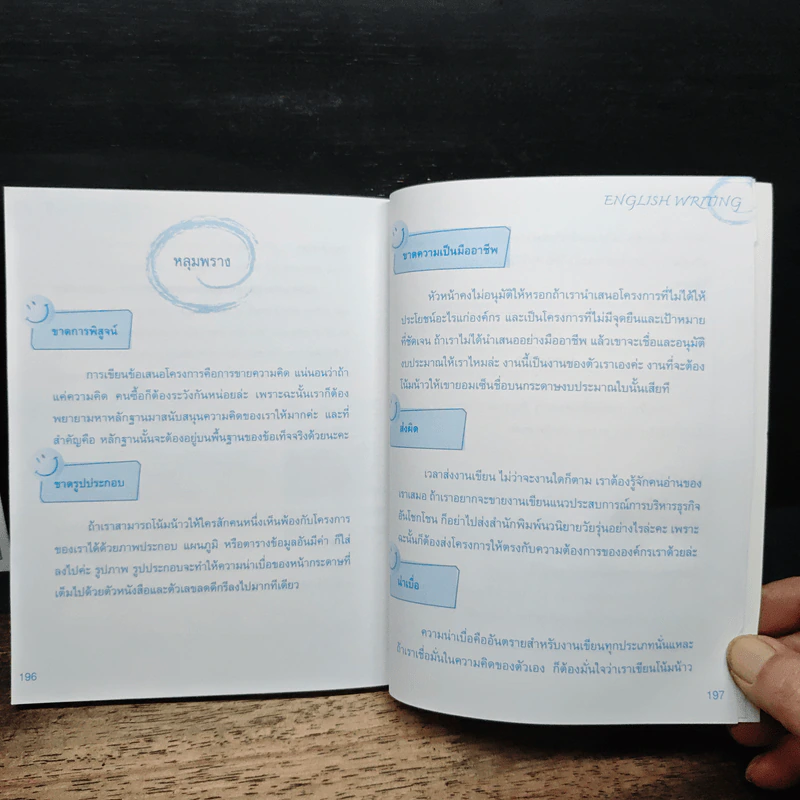 หลุมพราง
ขาดการพิสูจน์
การเขียนข้อเสนอโครงการคือการขายความคิด แน่นอนว่าถ้า
แค่ความคิด คนซื้อก็ต้องระวังกันหน่อยล่ะ เพราะฉะนั้นเราก็ต้อง
พยายามหาหลักฐานมาสนับสนุนความคิดของเราให้มากค่ะ และที่
สำคัญคือ หลักฐานนั้นจะต้องอยู่บนพื้นฐานของข้อเท็จจริงด้วยนะคะ
ขาดรูปประกอบ
ถ้าเราสามารถโน้มน้าวให้ใครสักคนหนึ่งเห็นพ้องกับโครงการ
ของเราได้ด้วยภาพประกอบ แผนภูมิ หรือตารางข้อมูลอันมีค่า ก็ใส่
ลงไปค่ะ รูปภาพ รูปประกอบจะทำให้ความน่าเบื่อของหน้ากระดาษที่
เต็มไปด้วยตัวหนังสือและตัวเลขลดดีกรีลงไปมากทีเดียว
196
ENGLISH WRITING
ขาดความเป็นมืออาชีพ
หัวหน้าคงไม่อนุมัติให้หรอกถ้าเรานำเสนอโครงการที่ไม่ได้ให้
ประโยชน์อะไรแก่องค์กร และเป็นโครงการที่ไม่มีจุดยืนและเป้าหมาย
ที่ชัดเจน ถ้าเราไม่ได้นำเสนออย่างมืออาชีพ แล้วเขาจะเชื่อและอนุมัติ
งบประมาณให้เราไหมล่ะ งานนี้เป็นงานของตัวเราเองค่ะ งานที่จะต้อง
โน้มน้าวให้เขายอมเซ็นชื่อบนกระดาษงบประมาณใบนั้นเสียที
ส่งผิด
เวลาส่งงานเขียน ไม่ว่าจะงานใดก็ตาม เราต้องรู้จักคนอ่านของ
เราเสมอ ถ้าเราอยากจะขายงานเขียนแนวประสบการณ์การบริหารธุรกิจ
อันโชกโชน ก็อย่าไปส่งสำนักพิมพ์นวนิยายวัยรุ่นอย่างไรล่ะคะ เพราะ
ฉะนั้นก็ต้องส่งโครงการให้ตรงกับความต้องการขององค์กรเราด้วยล่ะ
น่าเบื่อ
ความน่าเบื่อคืออันตรายสำหรับงานเขียนทุกประเภทนั่นแหละ
ถ้าเราเชื่อมั่นในความคิดของตัวเอง ก็ต้องมั่นใจว่าเราเขียนโน้มน้าว
197